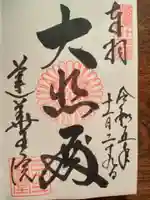 奉拝
令和五年
十一月二十九日
大悲殿
蓮華王院